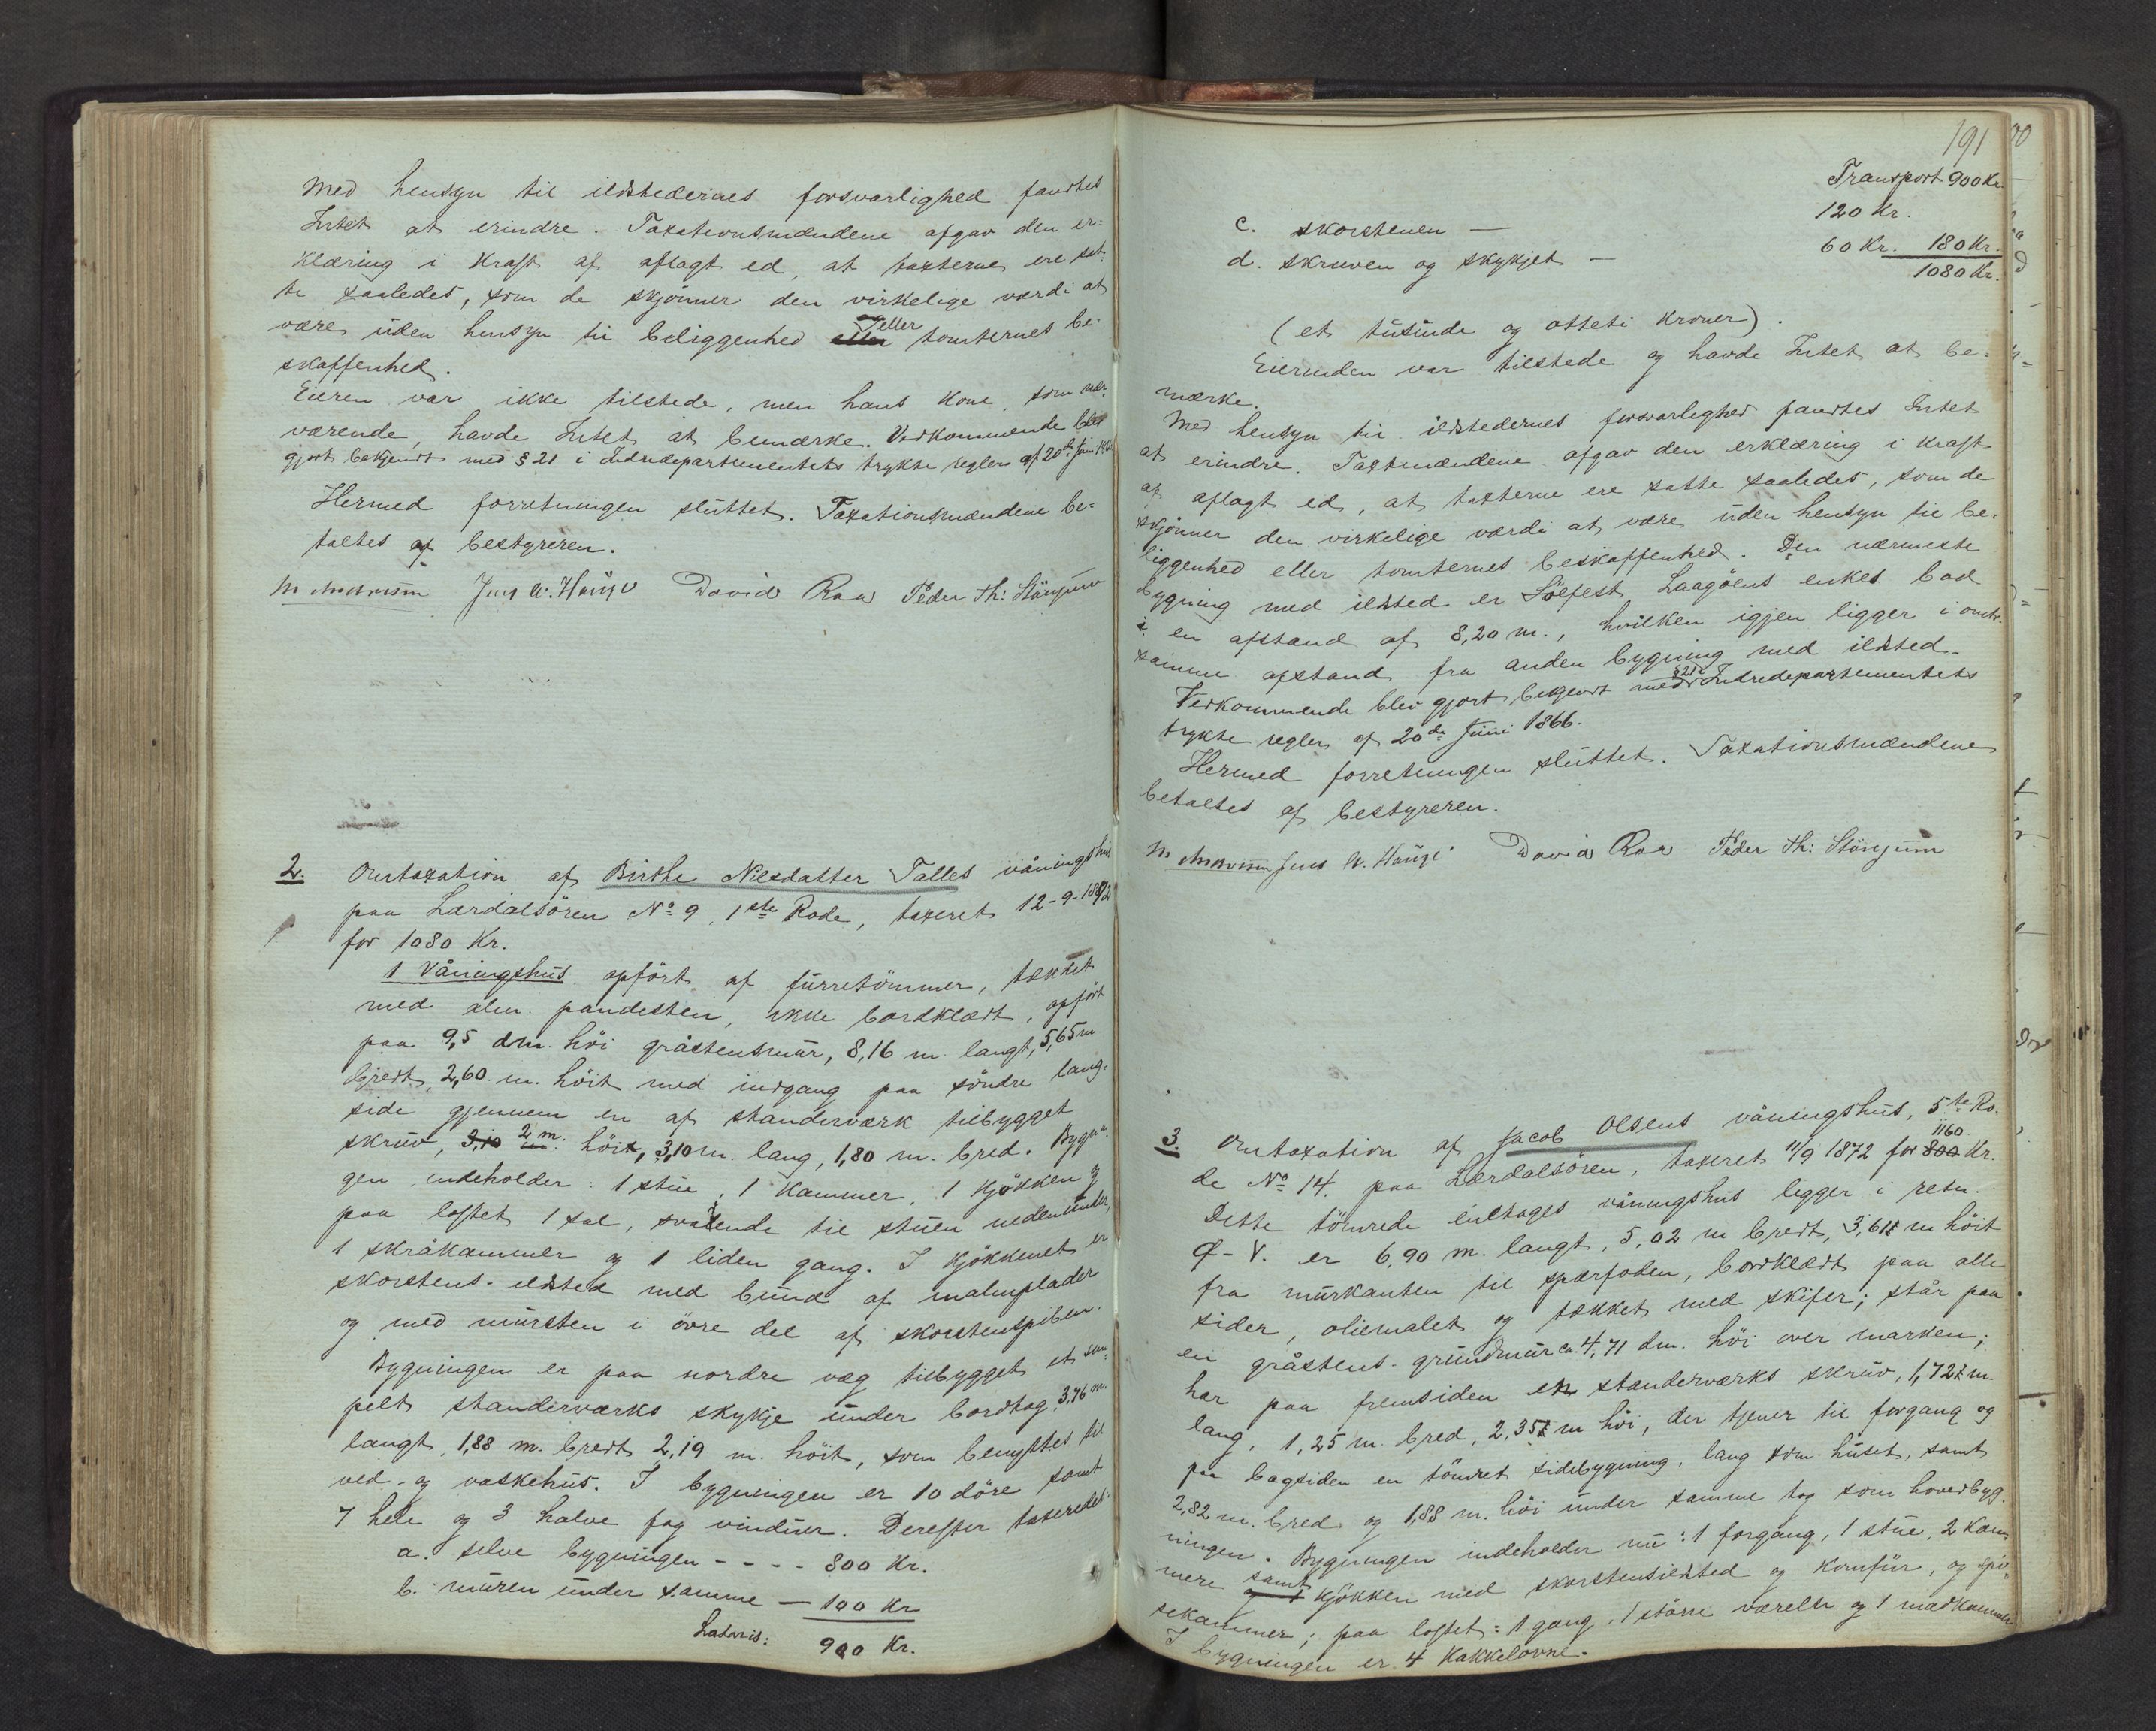 Med hensyn til ildstedernes forsvarlighed fandtes
Intet at erindre. Taxationsmændene afgav den er-
klæring i kraft af aflagt ed, at taxterne ere sat-
te saaledes, som de skjønner den virkelige værdi at
være uden hensyn til beliggenhed eller tomternes be-
skaffenhed.
Eieren var ikke tilstede, men hans kone, som nær-
værende, havde Intet at bemærke. Vedkommende blev
gjort bekjendt med § 21 i Indredepartementets trykte regler af 20de Juni 1866
Hermed forretningen sluttet. Taxationsmændene be-
taltes af bestyreren.
David Raa Peder Th: Stønjum
2. Omtaxation af Birthe Nilsdatter Talles våningshus
paa Lærdalsøren No 9, 1ste Rode, taxeret 12-9-1872
for 1080 Kr.
1 Våningshus opført af furretømmer, tækket
med alm. pandesten, ikke bordklædt, opført
paa 9,5 dm. høi gråstensmur, 8,16 m. langt, 5,65 m
bredt, 2,60 m. høit med indgang paa søndre lang-
side gjennem en af standerværk tilbygget
skruv, 3,10 2 m. høit, 3,10 m. lang, 1,80 m. bred. Bygnin-
gen indeholder: 1 stue, 1 kammer, 1 kjøkken og
paa loftet 1 sal, svarende til stuen nedenunder,
1 skråkammer og 1 liden gang. I kjøkkenet er
skorstens-ildsted med bund af malmplader
og med mursten i øvre del af skorstenspiben.
Bygningen er paa nordre væg tilbygget et sim-
pelt standerværks skykje under bordtag, 3,76 m.
langt, 1,88 m. bredt, 2,19 m. høit, som benyttes til
ved- og vaskehus. I bygningen er 10 døre samt
7 hele og 3 halve fag vinduer. Derefter taxeredes:
a. selve bygningen - - - - 800 Kr.
b. muren under samme — 100 Kr
Lateris: 900 Kr.
191
Transport 900 Kr
c. skorstenen — 120 Kr.
d. skruven og skykjet — 60 Kr. 180 Kr.
1080 Kr.
(et tusinde og otteti kroner).
Eierinden var tilstede og havde Intet at be-
mærke.
Med hensyn til ildstedernes forsvarlighed fandtes Intet
at erindre. Taxtmændene afgav den erklæring i kraft
af aflagt ed, at taxterne ere satte saaledes, som de
skjønner den virkelige værdi at være uden hensyn til be-
liggenhed eller tomternes beskaffenhed. Den nærmeste
bygning med ildsted er Sølfest Laagøens enkes bod
i en afstand af 8,20 m., hvilken igjen ligger i omtr.
samme afstand fra anden bygning med ildsted.
Vedkommende blev gjort bekjendt med § 21 i Indredepartementets
trykte regler af 20de Juni 1866.
Hermed forretningen sluttet. Taxationsmændene
betaltes af bestyreren.
David Raa Peder Th: Stønjum
3. Omtaxation af Jacob Olsens våningshus, 5te Ro-
de No 14. paa Lærdalsøren, taxeret 11/9 1872 for 800 1160 Kr.
Dette tømrede entages våningshus ligger i retn.
Ø-V. er 6,90 m. langt, 5,02 m bredt, 3,61 m høit
fra murkanten til spærfoden, bordklædt paa alle
sider, oliemalet og tækket med skifer; står paa
en gråstens-grundmur ca. 4,71 dm. høi over marken;
har paa fremsiden en standerværks skruv, 1,72 m.
lang, 1,25 m. bred, 2,35 m høi, der tjener til forgang og
paa bagsiden en tømret sidebygning, lang som huset, samt
2,82 m. bred og 1,88 m. høi under samme tag som hovedbyg-
ningen. Bygningen indeholder nu: 1 forgang, 1 stue, 2 kam-
mere samt kjøkken med skorstensildsted og komfur, og spi-
sekammer; paa loftet: 1 gang, 1 større værelse og 1 madkammer
I bygningen er 4 kakkelovne.